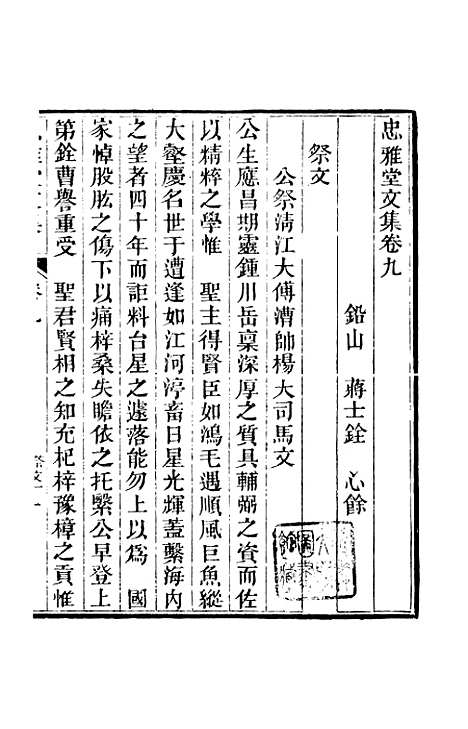 忠雅堂文集卷九
鉛山 蔣士銓 心餘
祭文
公祭清江大傅漕帥楊大司馬文
公生應昌期靈鍾川岳稟深厚之質具輔弼之資而佐
以精粹之學惟 聖主得賢臣如鴻毛遇順風巨魚縱
大壑慶名世于遭逢如江河渟畜日星光輝蓋繫海内
之望者四十年而詎料台星之遽落能勿上以爲 國
家悼股肱之傷下以痛梓桑失瞻依之托繄公早登上
第銓曹譽重受 聖君賢相之知充杞梓豫樟之貢惟
卷九
祭文一